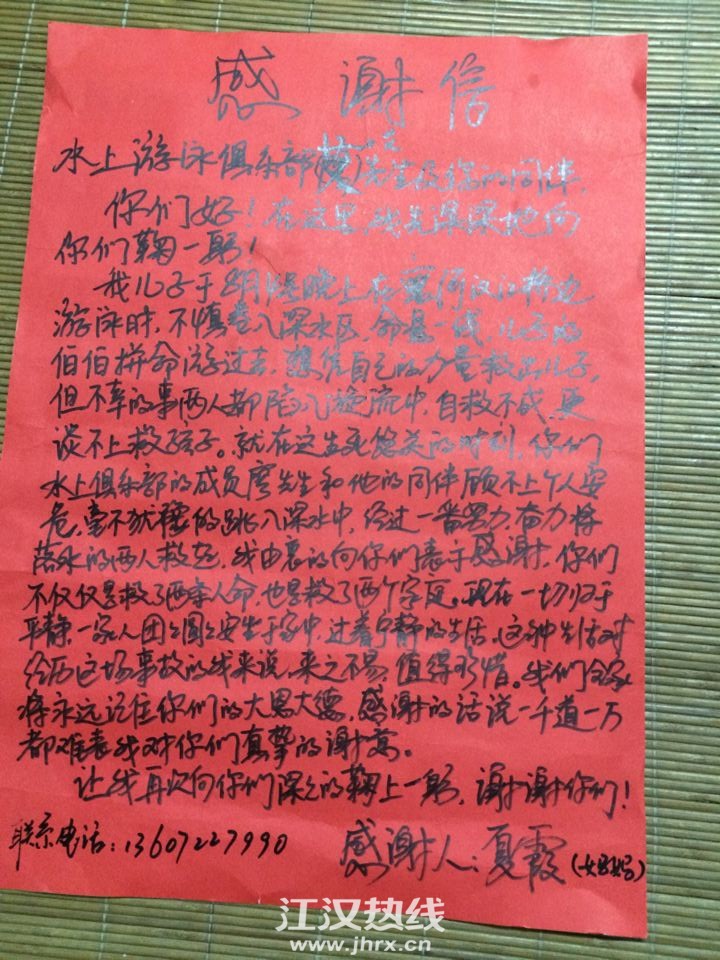 感谢信
水上游泳俱乐部 先生及你的同伴,
你们好!在这里,我先深深地向
你们鞠一躬!
我儿子于8月 晚上在 河汉江桥边
游泳时,不慎卷入深水区,命悬一线,儿子的
伯伯拼命游过去,想凭自己的力量救出儿子,
但不幸的事两人都陷入漩流中,自救不成,更
谈不上救孩子。就在这生死攸关的时刻,你们
水上俱乐部的成员廖先生和他的同伴顾不上个人安
危,毫不犹豫的跳入深水中,经过一番努力,奋力将
落水的两人救起,我由衷的向你们表示感谢,你们
不仅仅是救了两条人命,也是救了两个家庭。现在一切归于
平静,一家人团团圆圆安坐于家中,过着宁静的生活,这种生活对
经历这场事故的我来说,来之不易,值得珍惜。我们全家
将永远记住你们的大恩大德,感谢的话说一千道一万
都难表我对你们真挚的谢意。
让我再次向你们深深的鞠上一躬,谢谢你们!
联系电话:13607227990 感谢人:夏霞
江汉热线
www.jhrx.cn